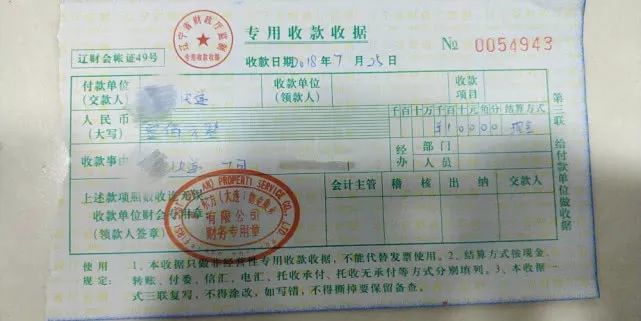 专用收款收据
辽宁省财政厅监制
专用收款收据
辽财会帐证49号
收款日期2018年7月25日
№ 0054943
付款单位
(交款人)
收款单位
(领款人)
收款
项目
人民币
(大写)
壹佰元整
千百十万千百十元角分
¥10000
结算方式
现金
收款事由
经 部门
办 人员
上述款项照数收讫无误
收款单位财会专用章
(领款人签章)
会计主管
稽核
出纳
交款人
PROPERTY SERVICE CO., LTD
(大连)
有限公司
财务专用章
第三联 给付款单位做收据
使用 1、本收据只做非经营性专用收款收据，不能代替发票使用。2、结算方式按现金、
规定: 转账、付委、信汇、电汇、托收承付、托收无承付等方式分别填列。3、本收据一
式三联复写，不得涂改，如写错，不得撕掉要保留备查。